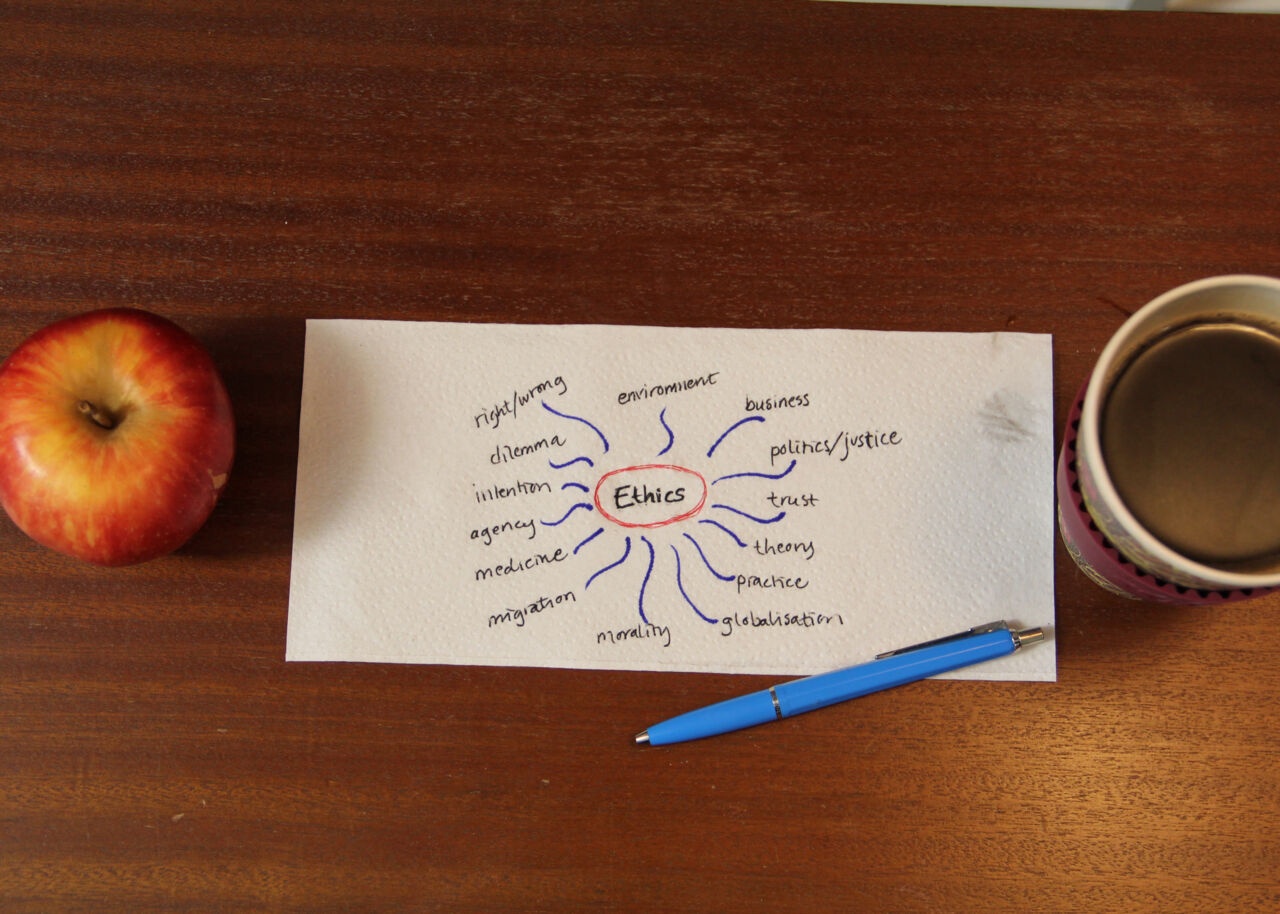 right/wrong
enviroment
business
dilemma
politics/justice
intention
Ethics
trust
agency
theory
medicine
practice
migration
globalisation
morality